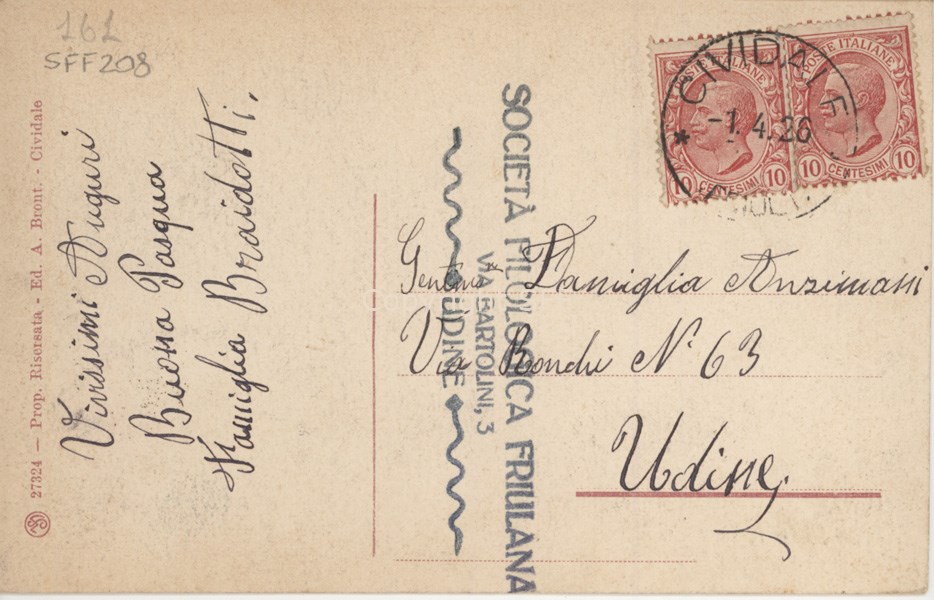 161
SFF208
27324 — Prop. Risersata - Ed. A. Bront. - Cividale
Vivissimi Auguri
Buona Pasqua
Famiglia Braidotti.
POSTE ITALIANE
10 CENTESIMI 10
POSTE ITALIANE
10 CENTESIMI 10
CIVIDALE
* -1.4.26
SOCIETÀ FILOLOGICA FRIULANA
VIA BARTOLINI, 3
UDINE
Famiglia
Via N° 63
Udine